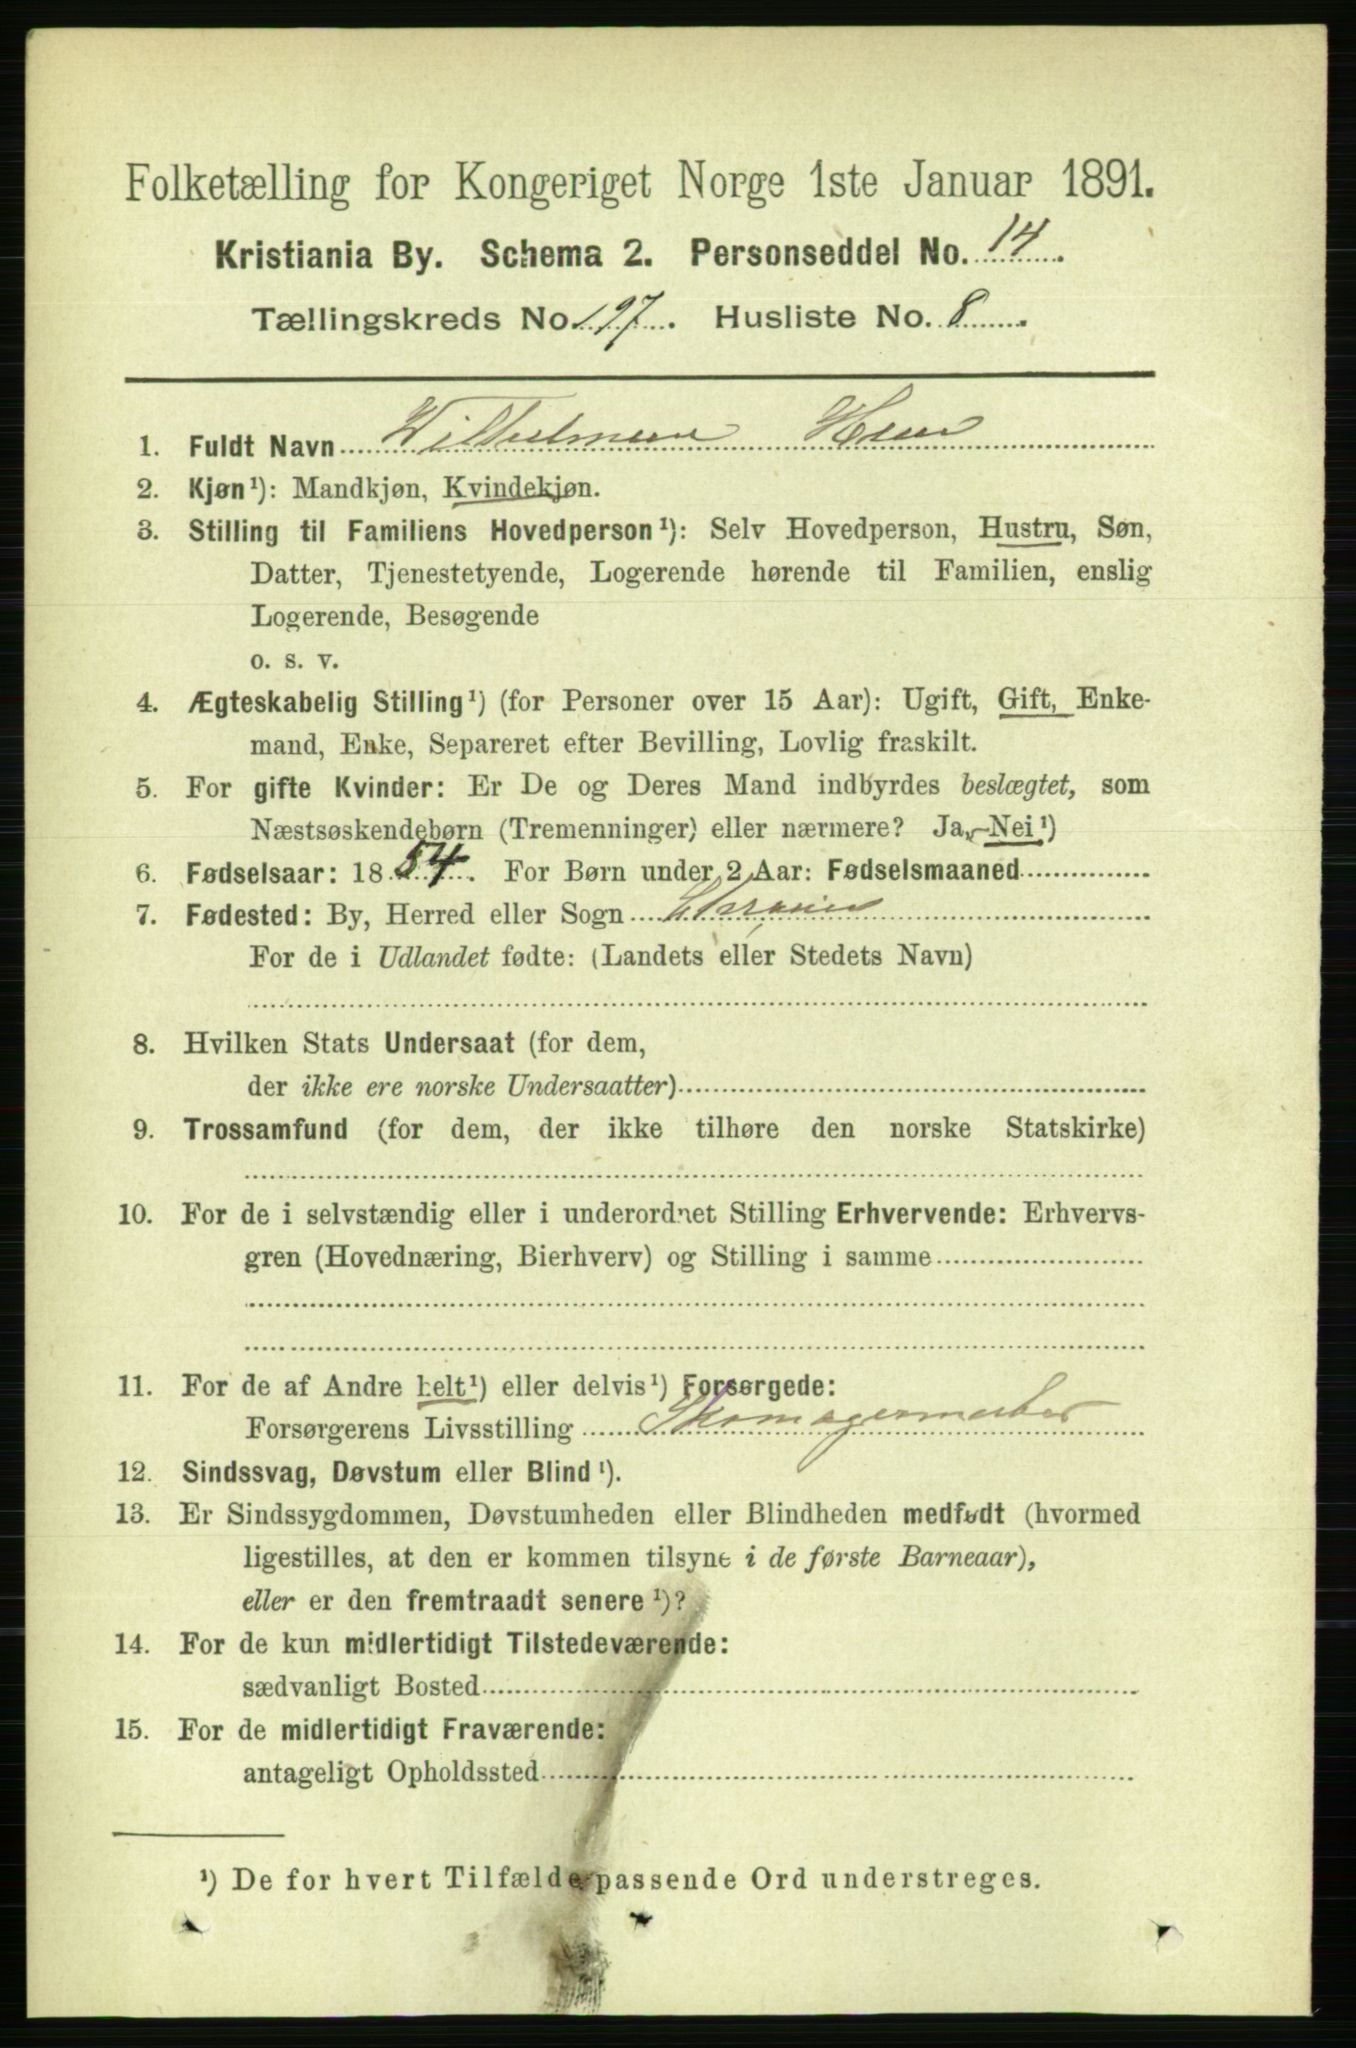 Folketælling for Kongeriget Norge 1ste Januar 1891.
Kristiania By. Schema 2. Personseddel No. 14.
Tællingskreds No. 197. Husliste No. 8.
1. Fuldt Navn
2. Kjøn ¹): Mandkjøn, Kvindekjøn.
3. Stilling til Familiens Hovedperson ¹): Selv Hovedperson, Hustru, Søn,
Datter, Tjenestetyende, Logerende hørende til Familien, enslig
Logerende, Besøgende
o. s. v.
4. Ægteskabelig Stilling ¹) (for Personer over 15 Aar): Ugift, Gift, Enke-
mand, Enke, Separeret efter Bevilling, Lovlig fraskilt.
5. For gifte Kvinder: Er De og Deres Mand indbyrdes beslægtet, som
Næstsøskendebørn (Tremenninger) eller nærmere? Ja, Nei ¹)
6. Fødselsaar: 1854. For Børn under 2 Aar: Fødselsmaaned
7. Fødested: By, Herred eller Sogn
For de i Udlandet fødte: (Landets eller Stedets Navn)
8. Hvilken Stats Undersaat (for dem,
der ikke ere norske Undersaatter)
9. Trossamfund (for dem, der ikke tilhøre den norske Statskirke)
10. For de i selvstændig eller i underordnet Stilling Erhvervende: Erhvervs-
gren (Hovednæring, Bierhverv) og Stilling i samme
11. For de af Andre helt ¹) eller delvis ¹) Forsørgede:
Forsørgerens Livsstilling Skomagermester
12. Sindssvag, Døvstum eller Blind ¹).
13. Er Sindssygdommen, Døvstumheden eller Blindheden medfødt (hvormed
ligestilles, at den er kommen tilsyne i de første Barneaar),
eller er den fremtraadt senere ¹)?
14. For de kun midlertidigt Tilstedeværende:
sædvanligt Bosted
15. For de midlertidigt Fraværende:
antageligt Opholdssted
¹) De for hvert Tilfælde passende Ord understreges.